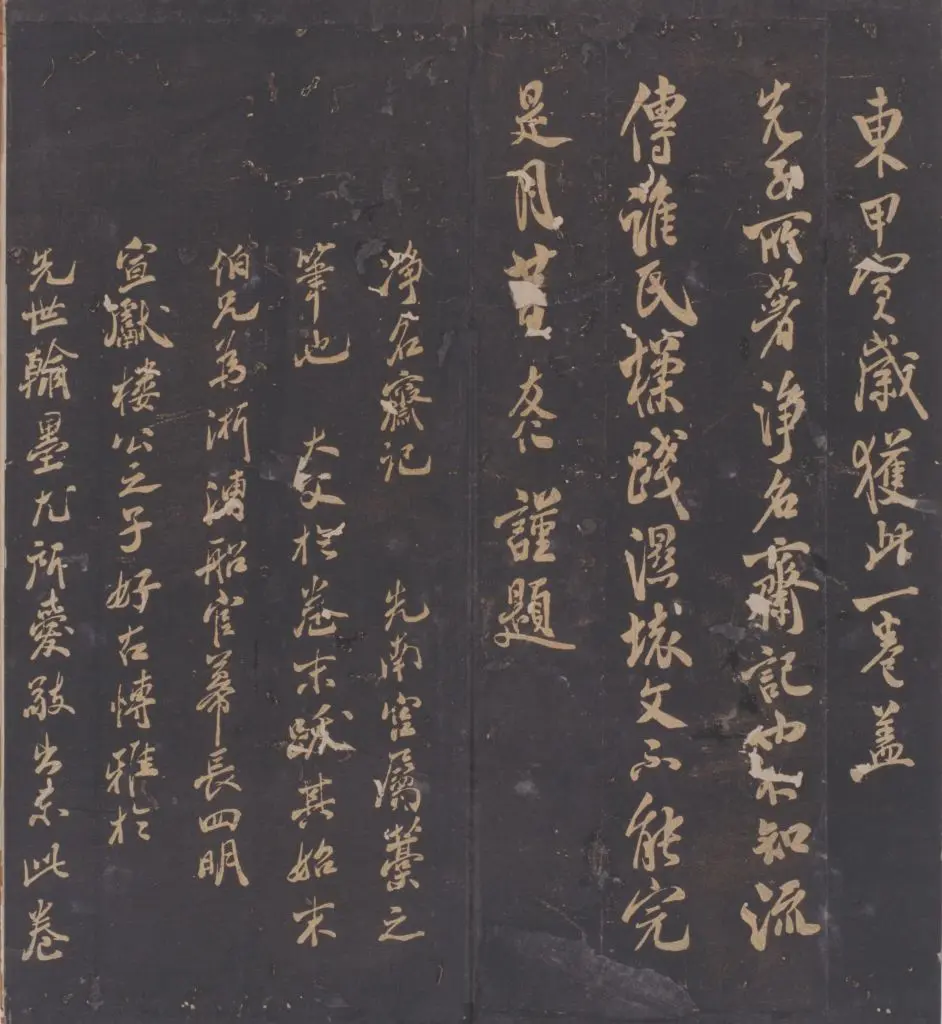 東甲寅歲獲此一卷蓋
先子所著淨名齋記也不知流
傳誰氏揉踐濕壞文不能完
是月廿日友仁謹題
淨名齋記 先南宮屬藁之
筆也 大父於卷末跋其始末
伯兄為浙漕船官幕長四明
宣獻樓公之子好古博雅於
先世翰墨尤所愛敬出示此卷